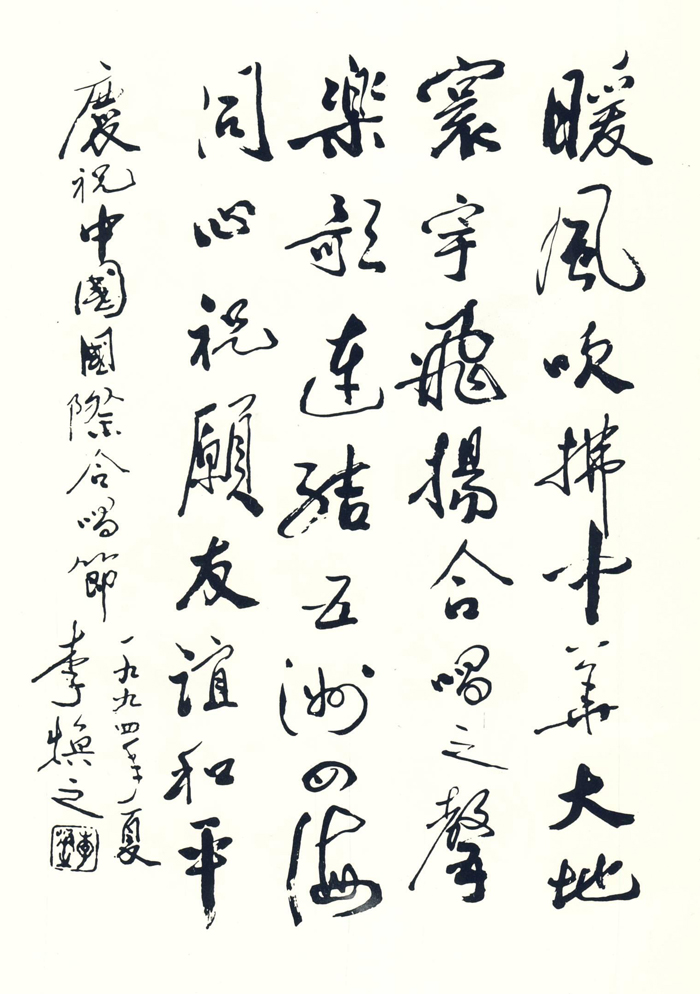 暖風吹拂中華大地
寰宇飛揚合唱之聲
樂歌連結五洲四海
同心祝願友誼和平
慶祝中國國際合唱節
一九九四年夏
李煥之